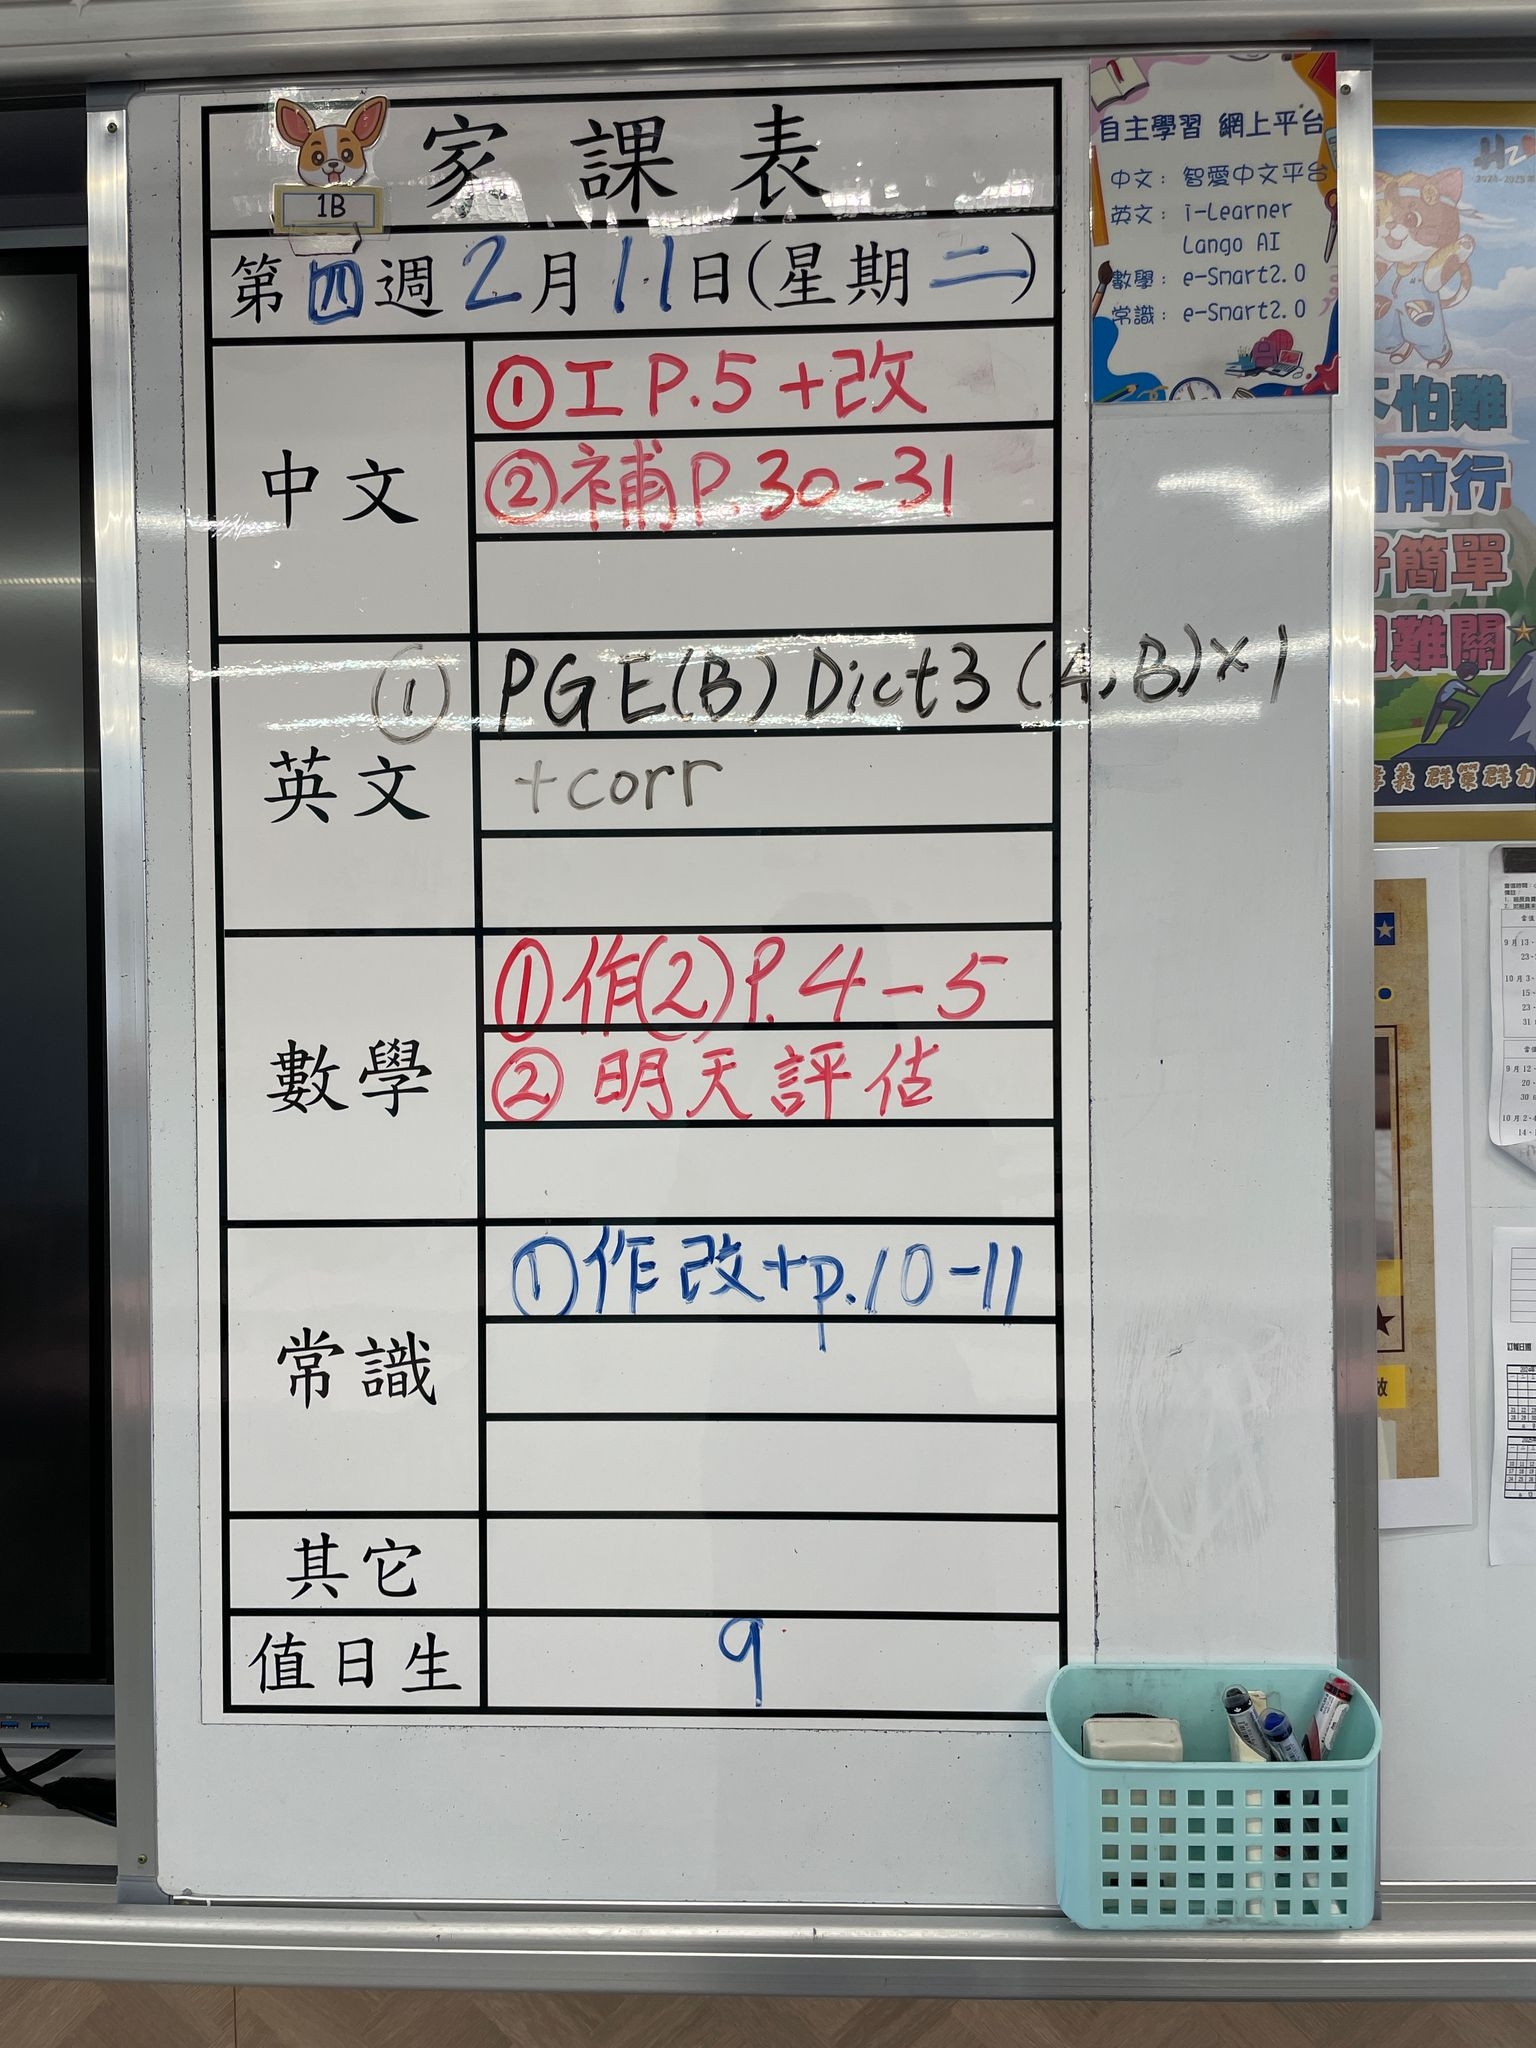 1B
家課表
第四週2月11日(星期二)
中文
①工P.5+改
②補P.30-31
英文
① PGE(B) Dict3 (A,B)×1
+corr
數學
①作(2)P.4-5
②明天評估
常識
①作改+p.10-11
其它
值日生
9
自主學習 網上平台
中文：智愛中文平台
英文：i-Learner
Lango AI
數學：e-Smart2.0
常識：e-Smart2.0
2024-2025
怕難
前行
簡單
難關
群策群力